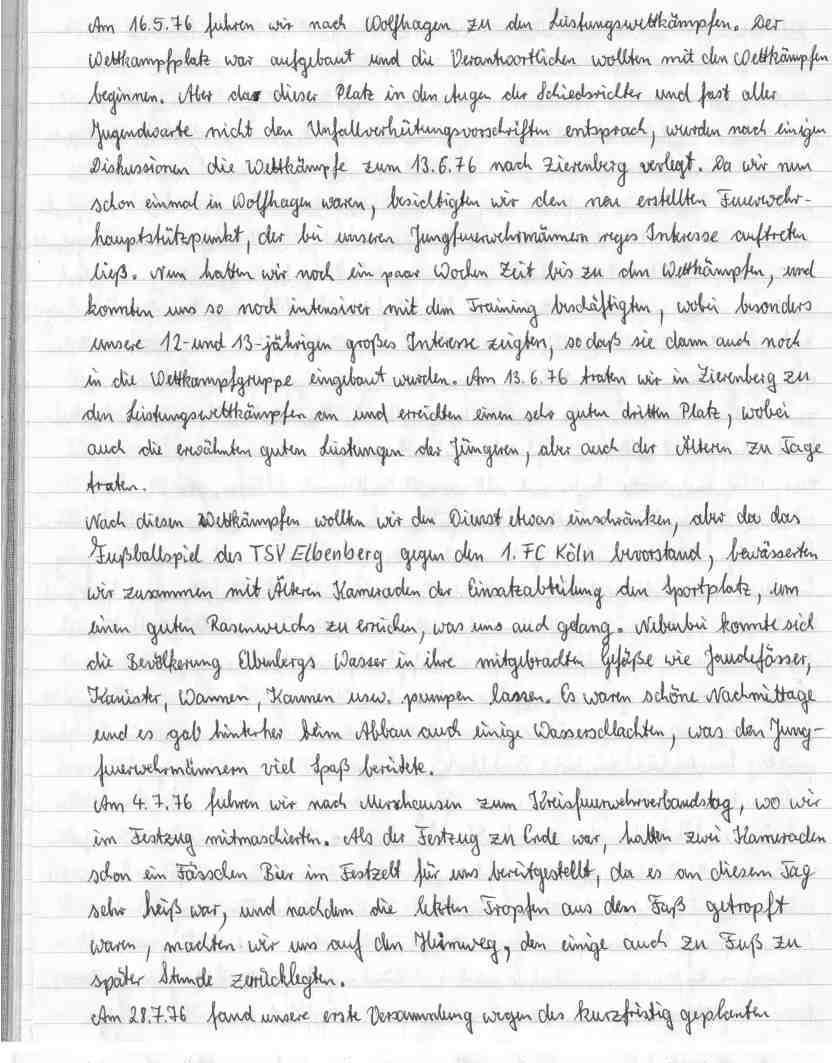 Am 16.5.76 fuhren wir nach Wolfhagen zu den Leistungswettkämpfen. Der
Wettkampfplatz war aufgebaut und die Verantwortlichen wollten mit den Wettkämpfen
beginnen. Aber da dieser Platz in den Augen der Schiedsrichter und fast aller
Jugendwarte nicht den Unfallverhütungsvorschriften entsprach, wurden nach einigen
Diskussionen die Wettkämpfe zum 13.6.76 nach Zierenberg verlegt. Da wir nun
schon einmal in Wolfhagen waren, besichtigten wir den neu erstellten Feuerwehr-
hauptstützpunkt, der bei unseren Jungfeuerwehrmännern reges Interesse auftreten
ließ. Nun hatten wir noch ein paar Wochen Zeit bis zu den Wettkämpfen, und
konnten uns so noch intensiver mit dem Training beschäftigten, wobei besonders
unsere 12- und 13-jährigen großes Interesse zeigten, sodaß sie dann auch noch
in die Wettkampfgruppe eingebaut wurden. Am 13.6.76 traten wir in Zierenberg zu
den Leistungswettkämpfen an und erreichten einen sehr guten dritten Platz, wobei
auch die erwähnten guten Leistungen der Jüngeren, aber auch der Älteren zu Tage
traten.
Nach diesen Wettkämpfen wollten wir den Dienst etwas einschränken, aber da das
Fußballspiel des TSV Elbenberg gegen den 1. FC Köln bevorstand, bewässerten
wir zusammen mit Älteren Kameraden der Einsatzabteilung den Sportplatz, um
einen guten Rasenwuchs zu erreichen, was uns auch gelang. Nebenbei konnte sich
die Bevölkerung Elbenbergs Wasser in ihre mitgebrachten Gefäße wie Jauchefässer,
Kanister, Wannen, Kannen usw. pumpen lassen. Es waren schöne Nachmittage
und es gab hinterher beim Abbau auch einige Wasserschlachten, was den Jung-
feuerwehrmännern viel Spaß bereitete.
Am 4.7.76 fuhren wir nach Merxhausen zum Kreisfeuerwehrverbandstag, wo wir
im Festzug mitmaschierten. Als der Festzug zu Ende war, hatten zwei Kameraden
schon ein Fässchen Bier im Festzelt für uns bereitgestellt, da es an diesem Tag
sehr heiß war, und nachdem die letzten Tropfen aus dem Faß getropft
waren, machten wir uns auf den Heimweg, den einige auch zu Fuß zu
später Stunde zurücklegten.
Am 28.7.76 fand unsere erste Versammlung wegen des kurzfristig geplanten